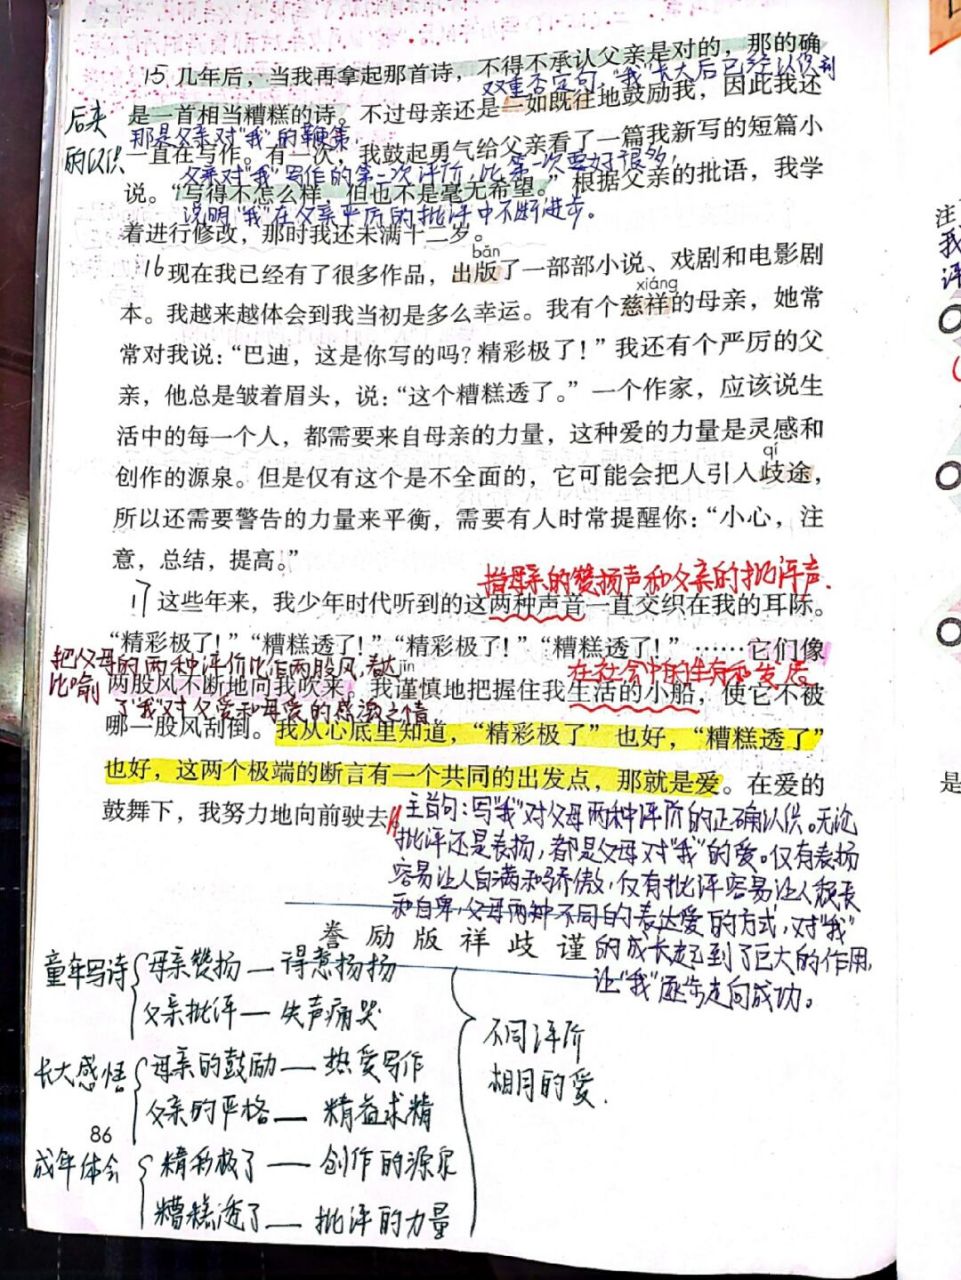 15 几年后，当我再拿起那首诗，不得不承认父亲是对的，那的确
双重否定句，"我"长大后已经认识到
是一首相当糟糕的诗。不过母亲还是一如既往地鼓励我，因此我还
后来
的认识
那是父亲对"我"的鞭策。
一直在写作。有一次，我鼓起勇气给父亲看了一篇我新写的短篇小
父亲对"我"写作的第二次评价，比第一次要好很多，
说。"写得不怎么样，但也不是毫无希望。"根据父亲的批语，我学
说明"我"在父亲严厉的批评中不断进步。
着进行修改，那时我还未满十二岁。
bǎn
16 现在我已经有了很多作品，出版了一部部小说、戏剧和电影剧
xiáng
本。我越来越体会到我当初是多么幸运。我有个慈祥的母亲，她常
常对我说："巴迪，这是你写的吗？精彩极了！"我还有个严厉的父
亲，他总是皱着眉头，说："这个糟糕透了。"一个作家，应该说生
活中的每一个人，都需要来自母亲的力量，这种爱的力量是灵感和
qí
创作的源泉。但是仅有这个是不全面的，它可能会把人引入歧途，
所以还需要警告的力量来平衡，需要有人时常提醒你："小心，注
意，总结，提高。"
指母亲的赞扬声和父亲的批评声.
17 这些年来，我少年时代听到的这两种声音一直交织在我的耳际。
"精彩极了！""糟糕透了！""精彩极了！""糟糕透了！"……它们像
把父母的两种评价比作两股风，表达
jǐn
在社会中的生存和发展
比喻
两股风不断地向我吹来。我谨慎地把握住我生活的小船，使它不被
了"我"对父爱和母爱的感激之情
哪一股风刮倒。我从心底里知道，"精彩极了"也好，"糟糕透了"
也好，这两个极端的断言有一个共同的出发点，那就是爱。在爱的
鼓舞下，我努力地向前驶去。
主旨句：写"我"对父母两种评价的正确认识。无论
批评还是表扬，都是父母对"我"的爱。仅有表扬
容易让人自满和骄傲，仅有批评容易让人
和自卑，父母两种不同的表达爱的方式，对"我"
誊 励 版 祥 歧 谨
的成长起到了巨大的作用，
让"我"逐步走向成功。
童年写诗 母亲赞扬—得意扬扬
父亲批评—失声痛哭
不同评价
相同的爱.
长大感悟 母亲的鼓励—热爱写作
父亲的严格—精益求精
86
成年体会 精彩极了—创作的源泉
糟糕透了—批评的力量
注
我
评
是